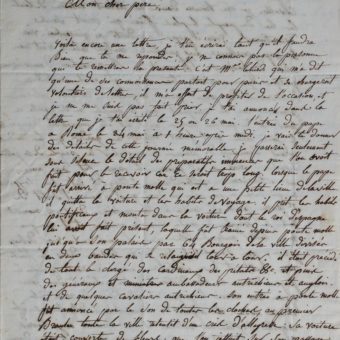 Mon cher père
Voilà encore une lettre, je t'en écrirai tant qu'il faudra
Bien que tu me repondes, je ne connois pas la personne
qui te remettra la présente c'est Mr qui m'a dit
qu'une de ses connoissances partoit pour et se chargeroit
volontiers de lettre, il m'a offert de profiter de l'occasion, et
je ne me suis pas fait prier, je t'ai annoncé dans la
lettre que je t'ai écrite le 25 ou 26 mai l'entrée du pape
a Rome le 24 mai a heures après midi, je vais te donner
des détails de cette journée mémorable, je passerai seulement
sous silence le détail des preparatifs immenses que l'on avoit
fait pour le recevoir car ce seroit trop long, lorsque le pape
fut arrivé a ponte molle qui est a une petite lieue de la ville
il quitta la voiture et les habits de voyage, il prit les habits
pontificaux et monta dans la voiture dont le roi d'espagne
lui avoit fait présent, laquelle fut trainée depuis ponte molle
jusqu'à son palais par 64 Bourgeois de la ville divisés
en deux bandes qui se tour a tour, il étoit précédé
de tout le clergé des Cardinaux des prélats &c. et suivi
des généraux et ambassadeurs autrichiens et anglois
et de quelques cavaliers autrichiens. Son entrée a ponte molle
fut annoncée par le son de toutes les cloches, au premier
Branle toute la ville retentit d'un cri d'allegresse. Sa voiture
étoit couverte de fleurs que l'on jettoit sur son passage